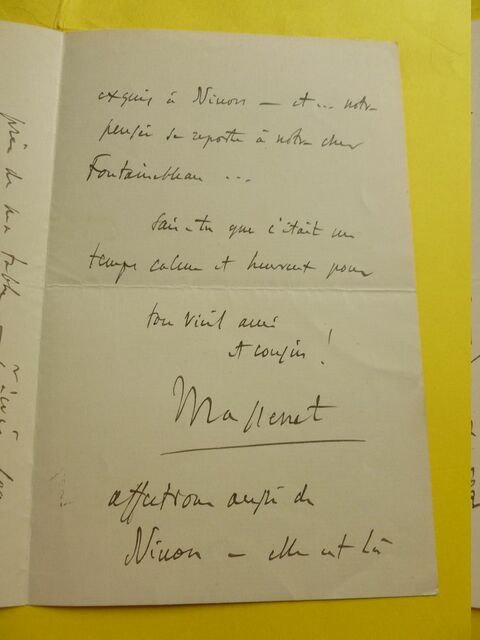 exquis à Ninon — et... notre
pensée se reporte à notre cher
Fontainebleau ...
Sais-tu que c'était un
temps calme et heureux pour
ton vieil ami
et cousin !
Massenet
affections aussi de
Ninon — elle est là
près de ma table —